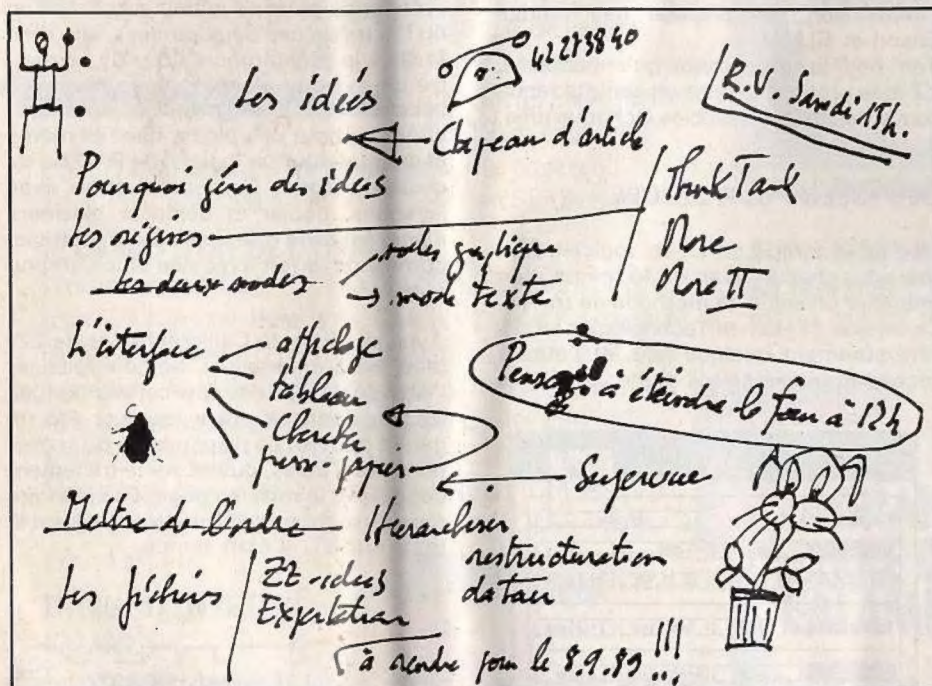 42273840
Les idées
Chapeau d'article
R.V. Samdi 15h.
Pourquoi gérer des idées
Les origines
Think Tank
More
More II
Les deux modes
mode graphique
mode texte
L'interface
affichage
tableau
Chercher
presse-papier
Penser à éteindre le four à 12h
Supervue
Mettre de l'ordre
Hierarchiser
restructuration
Les fichiers
ZZ-idées
Exportation
à rendre pour le 8.9.89 !!!